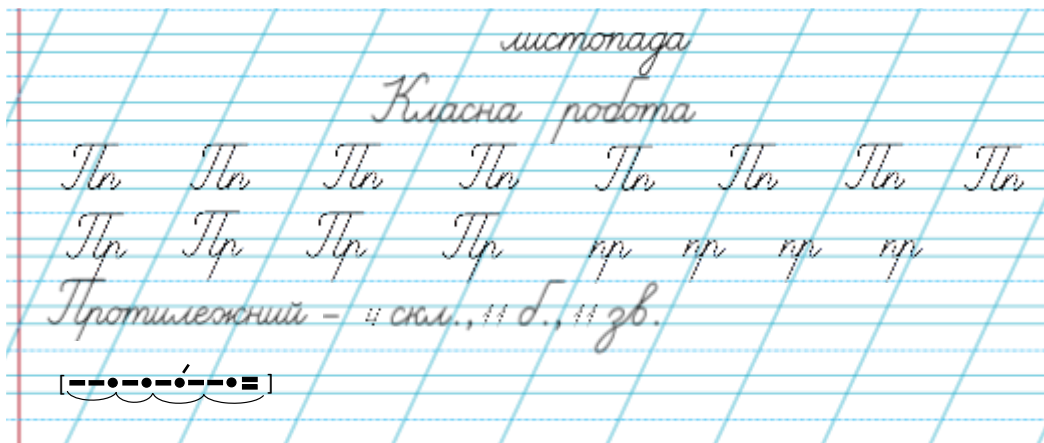 листопада
Класна робота
Пп Пп Пп Пп Пп Пп Пп Пп
Пр Пр Пр Пр пр пр пр пр
Протилежний – 4 скл., 11 б., 11 зв.
[– – • – • – •́ – – • =]